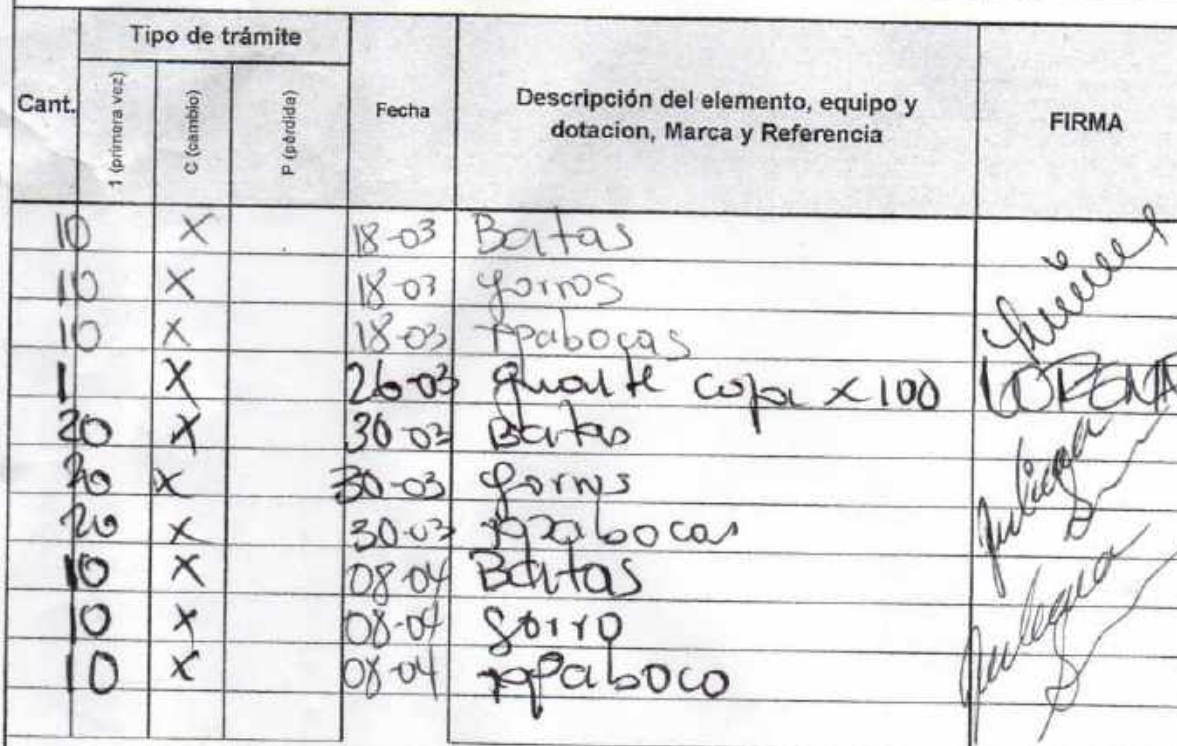 Tipo de trámite
Cant. 1 (primera vez) C (cambio) P (pérdida) Fecha Descripción del elemento, equipo y dotacion, Marca y Referencia FIRMA
10 X 18-03 Batas
10 X 18-03 gorros
10 X 18-03 tapabocas
1 X 26-03 guante caja x 100 LORENA
20 X 30-03 Batas
20 X 30-03 gorros
20 X 30-03 tapabocas
10 X 08-04 Batas
10 X 08-04 gorro
10 X 08-04 tapaboco